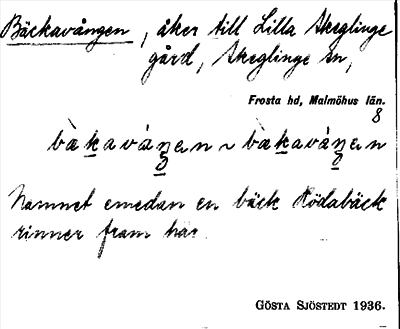 Bäckavången, åker till Lilla Skeglinge
gård, Skeglinge sn,
Frosta hd, Malmöhus län.
8
bàkaváŋan ~ bàkaváŋan
Namnet emedan en bäck Rödabäck
rinner fram här.
GÖSTA SJÖSTEDT 1936.